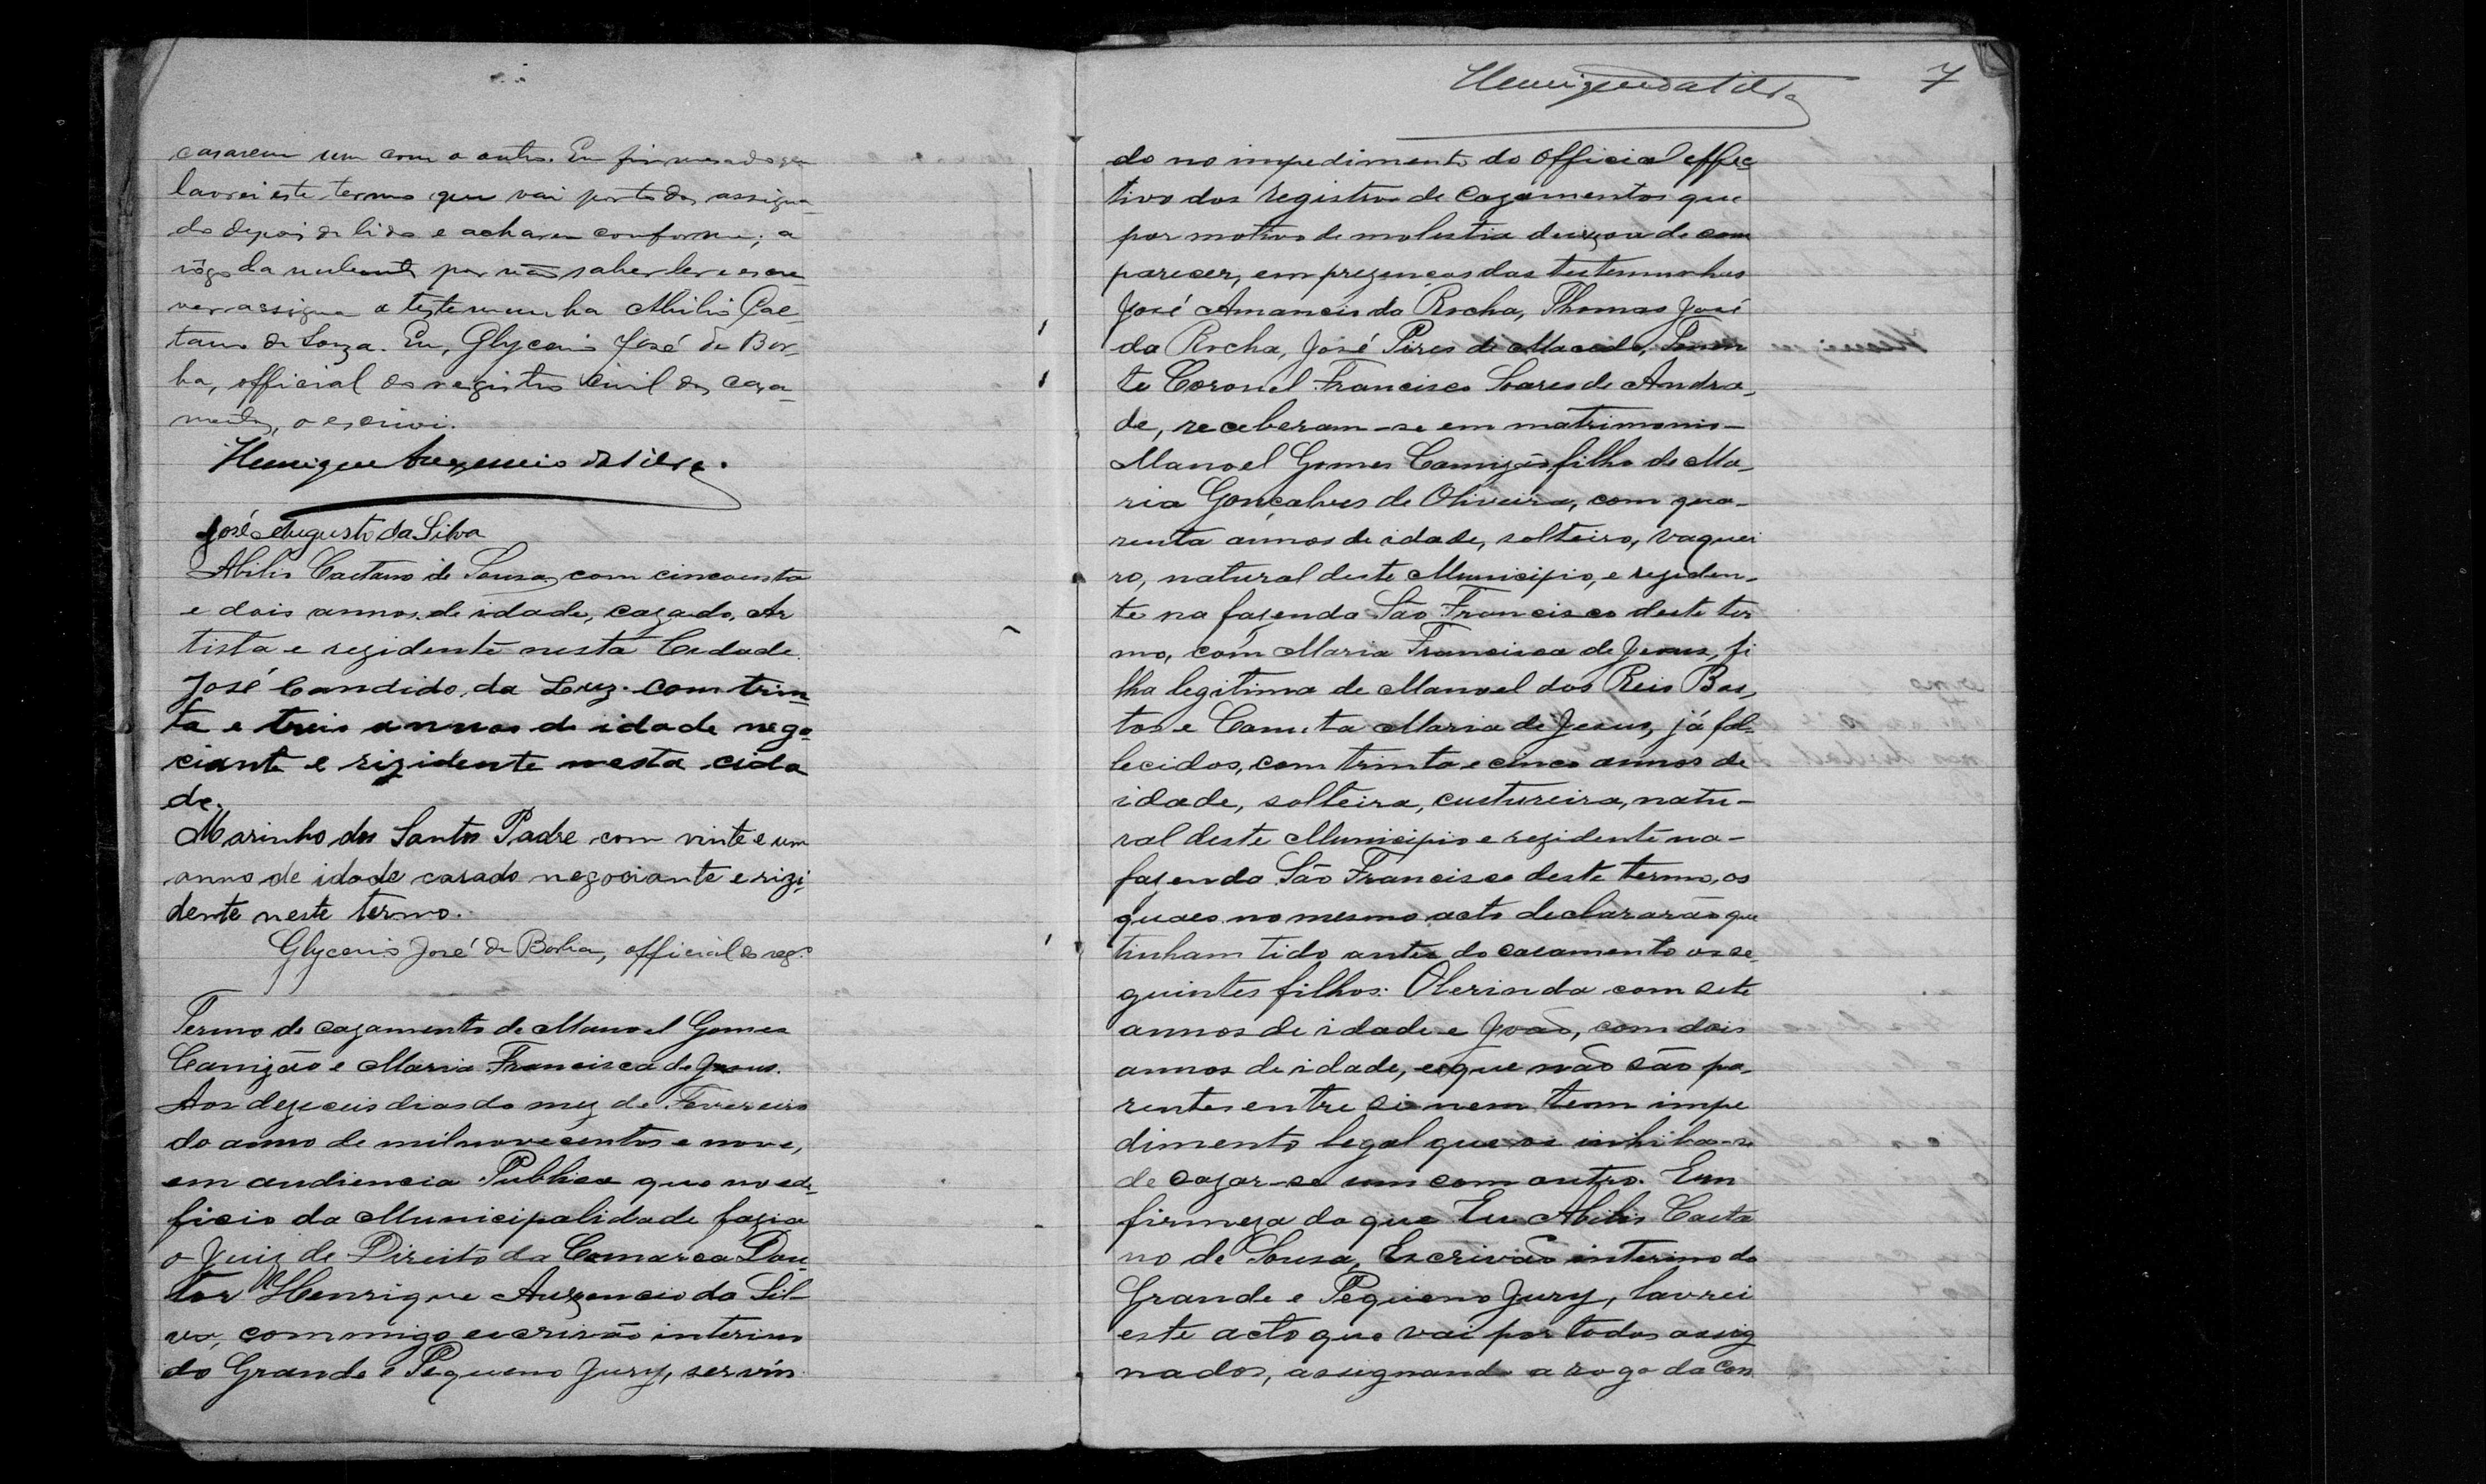 casarem um com o outro. Em firmesa do que
lavrei este termo que vai por todos assigna-
do depois de lido e acharem conforme; a
rôgo da nubente por não saber ler e escre-
ver assigna a testemunha Abilio Cae-
tano de Souza. Eu, Glycerio José de Bor-
ba, official do registro civil dos casa-
mentos, o escrivi.
Henrique Auxencio da Silva.
José Augusto da Silva
Abilio Caetano de Sousa, com cincoenta
e dois annos de idade, cazado, Ar
tista e rezidente nesta Cidade.
José Candido da Luz. com trin-
ta e treis annos de idade nego-
ciante e rizidente nesta cida
de.
Marinho dos Santos Padre com vinte e um
anno de idade casado negociante e rizi
dente neste termo.
Glycerio José de Borba, official do reg.º
Termo de cazamento de Manoel Gomes
Camizão e Maria Francisca de Jesus.
Aos dezeceis dias do mez de Fevereiro
do anno de mil novecentos e nove,
em audiencia Publica que no edi-
ficio da Municipalidade fazia
o Juiz de Direito da Comarca Dou-
tor Henrique Auxencio da Sil-
va, commigo escrivão interino
do Grande e Pequeno Jury, servin
Henrique da Silva 7
do no impedimento do official effec
tivo dos registros de cazamentos que
por motivo de molestia deixou de com
parecer, em prezenças das testemunhas
José Amancio da Rocha, Thomas José
da Rocha, José Pires de Macedo, Tenen
te Coronel Francisco Soares de Andra-
de, receberam-se em matrimonio-
Manoel Gomes Camizão filho de Ma-
ria Gonçalves de Oliveira, com qua-
renta annos de idade, solteiro, vaquei
ro, natural deste Municipio, e reziden-
te na fazenda São Francisco deste ter
mo, com Maria Francisca de Jesus, fi
lha legitima de Manoel dos Reis Bas-
tos e Maria de Jesus, já fal-
lecidos, com trinta e cinco annos de
idade, solteira, custureira, natu-
ral deste Municipio e rezidente na-
fazenda São Francisco deste termo, os
quaes no mesmo acto declararão que
tinham tido antes do casamento os se-
guintes filhos: Olerinda com sete
annos de idade e João, com dois
annos de idade, e que não são pa-
rentes entre si nem tem impe
dimento legal que os inhiba-se
de cazar-se um com outro. Em
firmeza do que Eu Abilio Caeta
no de Sousa, Escrivão interino do
Grande e Pequeno Jury, lavrei
este acto que vai por todos assig
nados, assignando a rogo da con